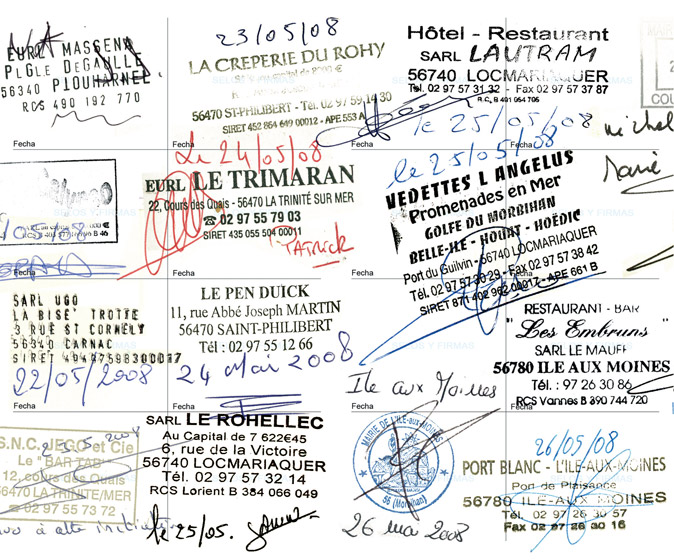 EURL MASSENA
PLGLE DeGAULLE
56340 PLOUHARNEL
RCS 490 192 770
Fecha
23/05/08
LA CREPERIE DU ROHY
56470 ST-PHILIBERT - Tél. 02 97 59 14 30
SIRET 452 864 649 00012 - APE 553 A
Fecha
Hôtel - Restaurant
SARL LAUTRAM
56740 LOCMARIAQUER
Tél. 02 97 57 31 32 - Fax 02 97 57 37 87
R.C. B 401 054 706
le 25/05/08
Fecha
COU
michel
Marie
Le 24/05/08
EURL LE TRIMARAN
22, Cours des Quais - 56470 LA TRINITÉ SUR MER
☎ 02 97 55 79 03
SIRET 435 055 504 00011
PATRICK
Fecha
le 25/05/08
VEDETTES L'ANGELUS
Promenades en Mer
GOLFE DU MORBIHAN
BELLE-ILE - HOUAT - HOËDIC
Port du Guilvin - 56740 LOCMARIAQUER
Tél. 02 97 57 30 29 - Fax 02 97 57 38 42
SIRET 871 402 962 00017 - APE 661 B
SARL UGO
LA BISE TROTTE
3 RUE ST CORNELY
56340 CARNAC
SIRET 49447598300017
22/05/2008
Fecha
LE PEN DUICK
11, rue Abbé Joseph MARTIN
56470 SAINT-PHILIBERT
Tél : 02 97 55 12 66
24 Mai 2008
Fecha
RESTAURANT - BAR
"Les Embruns"
SARL LE MAUFF
56780 ILE AUX MOINES
Tél. : 97 26 30 86
RCS Vannes B 390 744 720
Fecha
S.N.C. JEGO et Cie
Le "BAR TAB"
12, cours des Quais
56470 LA TRINITE/MER
02 97 55 73 72
SARL LE ROHELLEC
Au Capital de 7 622€45
6, rue de la Victoire
56740 LOCMARIAQUER
Tél. 02 97 57 32 14
RCS Lorient B 384 066 049
le 25/05.
Ile aux Moines
MAIRIE DE L'ILE-aux-MOINES
56 (Morbihan)
26 mai 2008
26/05/08
PORT BLANC - L'ILE-AUX-MOINES
Port de Plaisance
56780 ILE AUX MOINES
Tél. 02 97 26 30 57
Fax 02 97 26 30 16